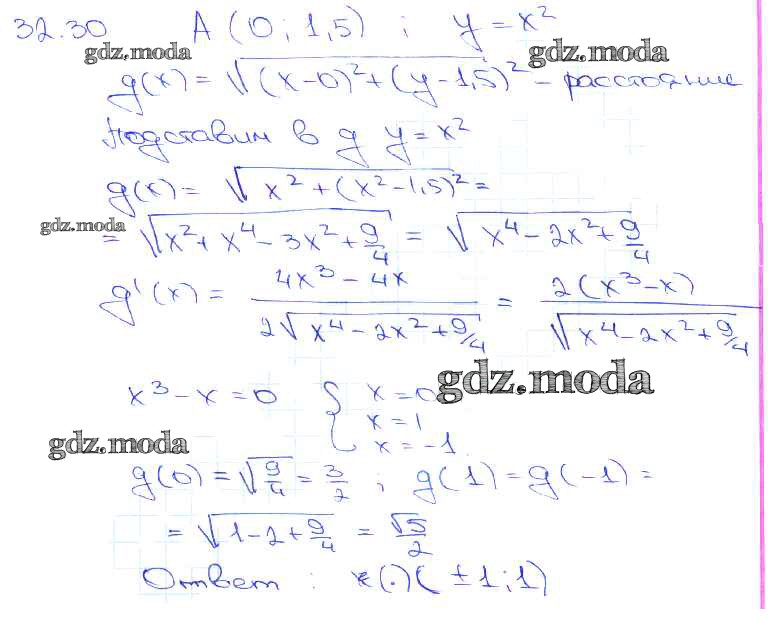 32.30 A (0; 1,5) ; y = x²
gdz.moda gdz.moda
g(x) = √((x-0)² + (y-1,5)²) - расстояние
Подставим в g y = x²
g(x) = √(x² + (x²-1,5)²) =
gdz.moda
= √(x² + x⁴ - 3x² + 9/4) = √(x⁴ - 2x² + 9/4)
g'(x) = (4x³ - 4x)/(2√(x⁴ - 2x² + 9/4)) = 2(x³ - x)/√(x⁴ - 2x² + 9/4)
gdz.moda
x³ - x = 0 { x = 0
x = 1
x = -1
gdz.moda
g(0) = √(9/4) = 3/2 ; g(1) = g(-1) =
= √(1 - 2 + 9/4) = √5/2
Ответ : (·)(±1; 1)